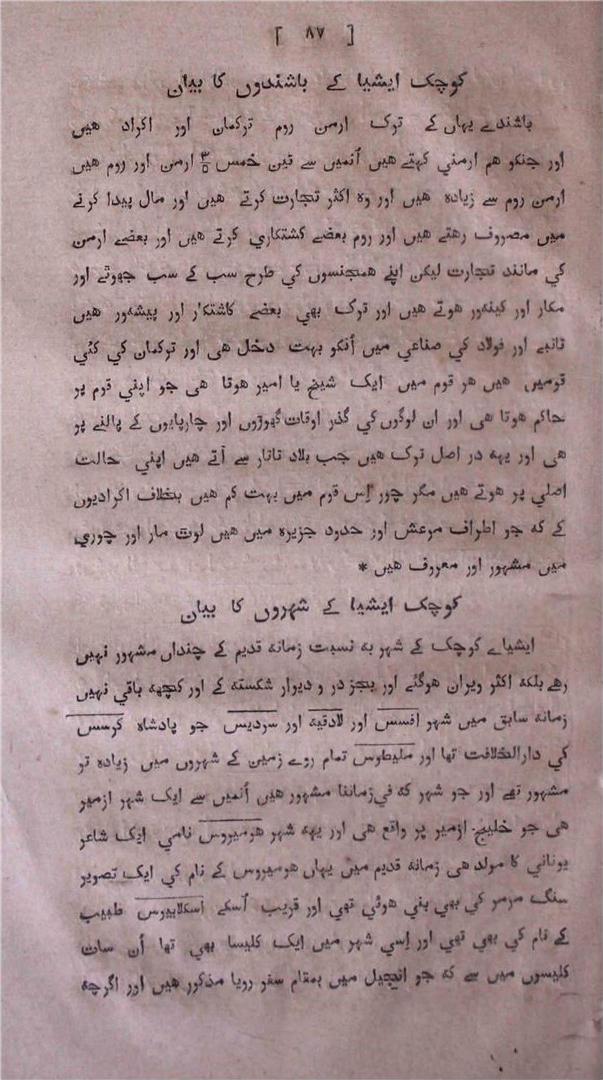 [ ۸۷ ]
کوچک ایشیا کے باشندوں کا بیان
باشندے یہاں کے ترک ارمن روم ترکمان اور اکراد ھیں
اور جنکو ھم ارمني کہتے ھیں اُنمیں سے تین خمس ۳/۵ ارمن اور روم ھیں
ارمن روم سے زیادہ ھیں اور وہ اکثر تجارت کرتے ھیں اور مال پیدا کرنے
میں مصروف رھتے ھیں اور روم بعضے کشتکاري کرتے ھیں اور بعضے ارمن
کي مانند تجارت لیکن اپنے ھمجنسوں کي طرح سب کے سب جھوٹے اور
مکار اور کینہ‌ور ھوتے ھیں اور ترک بھي بعضے کاشتکار اور پیشہ‌ور ھیں
تانبے اور فولاد کي صناعي میں اُنکو بہت دخل ھی اور ترکمان کي کئي
قومیں ھیں ھر قوم میں ایک شیخ یا امیر ھوتا ھی جو اپني قوم پر
حاکم ھوتا ھی اور ان لوگوں کي گذر اوقات گھوڑوں اور چارپایوں کے پالنے پر
ھی اور یہہ در اصل ترک ھیں جب بلاد تاتار سے آتے ھیں اپني حالت
اصلي پر ھوتے ھیں مگر چور اِس قوم میں بہت کم ھیں بخلاف اکرادیوں
کے کہ جو اطراف مرعش اور حدود جزیرہ میں ھیں لوٹ مار اور چوري
میں مشہور اور معروف ھیں *
کوچک ایشیا کے شہروں کا بیان
ایشیاے کوچک کے شہر بہ نسبت زمانہ قدیم کے چنداں مشہور نہیں
رھے بلکہ اکثر ویران ھوگئے اور بجز در و دیوار شکستہ کے اور کچھہ باقي نہیں
زمانہ سابق میں شہر افسس اور لادقیہ اور سردیس جو پادشاہ کرسس
کي دارالخلافت تھا اور ملیطوس تمام روے زمین کے شہروں میں زیادہ تر
مشہور تھے اور جو شہر کہ في‌زماننا مشہور ھیں اُنمیں سے ایک شہر ازمیر
ھی جو خلیج ازمیر پر واقع ھی اور یہہ شہر ھومیروس نامي ایک شاعر
یوناني کا مولد ھی زمانہ قدیم میں یہاں ھومیروس کے نام کي ایک تصویر
سنگ مرمر کي بھي بني ھوئي تھي اور قریب اُسکے اسکلابیوس طبیب
کے نام کي بھي تھي اور اِسي شہر میں ایک کلیسا بھي تھا اُن سات
کلیسوں میں سے کہ جو انجیل میں بمقام سفر رویا مذکور ھیں اور اگرچہ